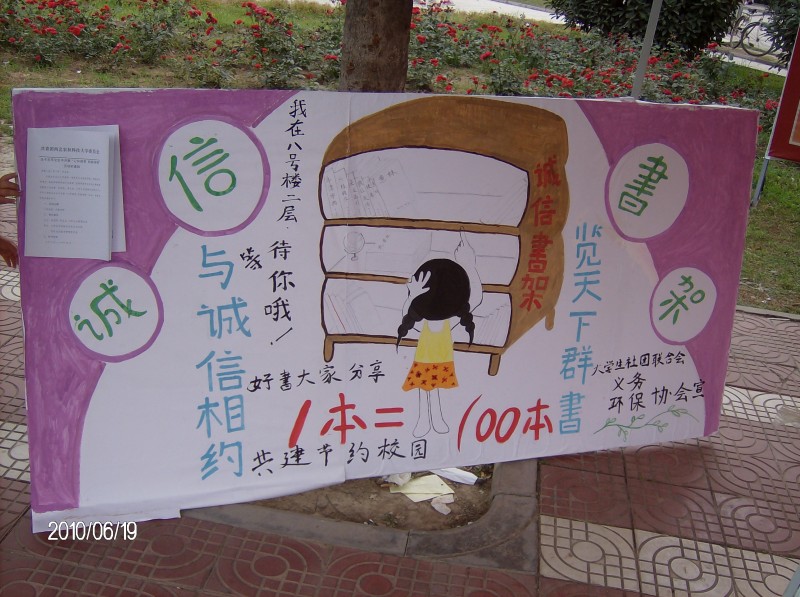 诚
信
書
架
我在八号楼二层
等待你哦!
诚信書架
与诚信相约
览天下群書
好書大家分享
1本=100本
共建节约校园
大学生社团联合会
义务
环保协会宣
2010/06/19